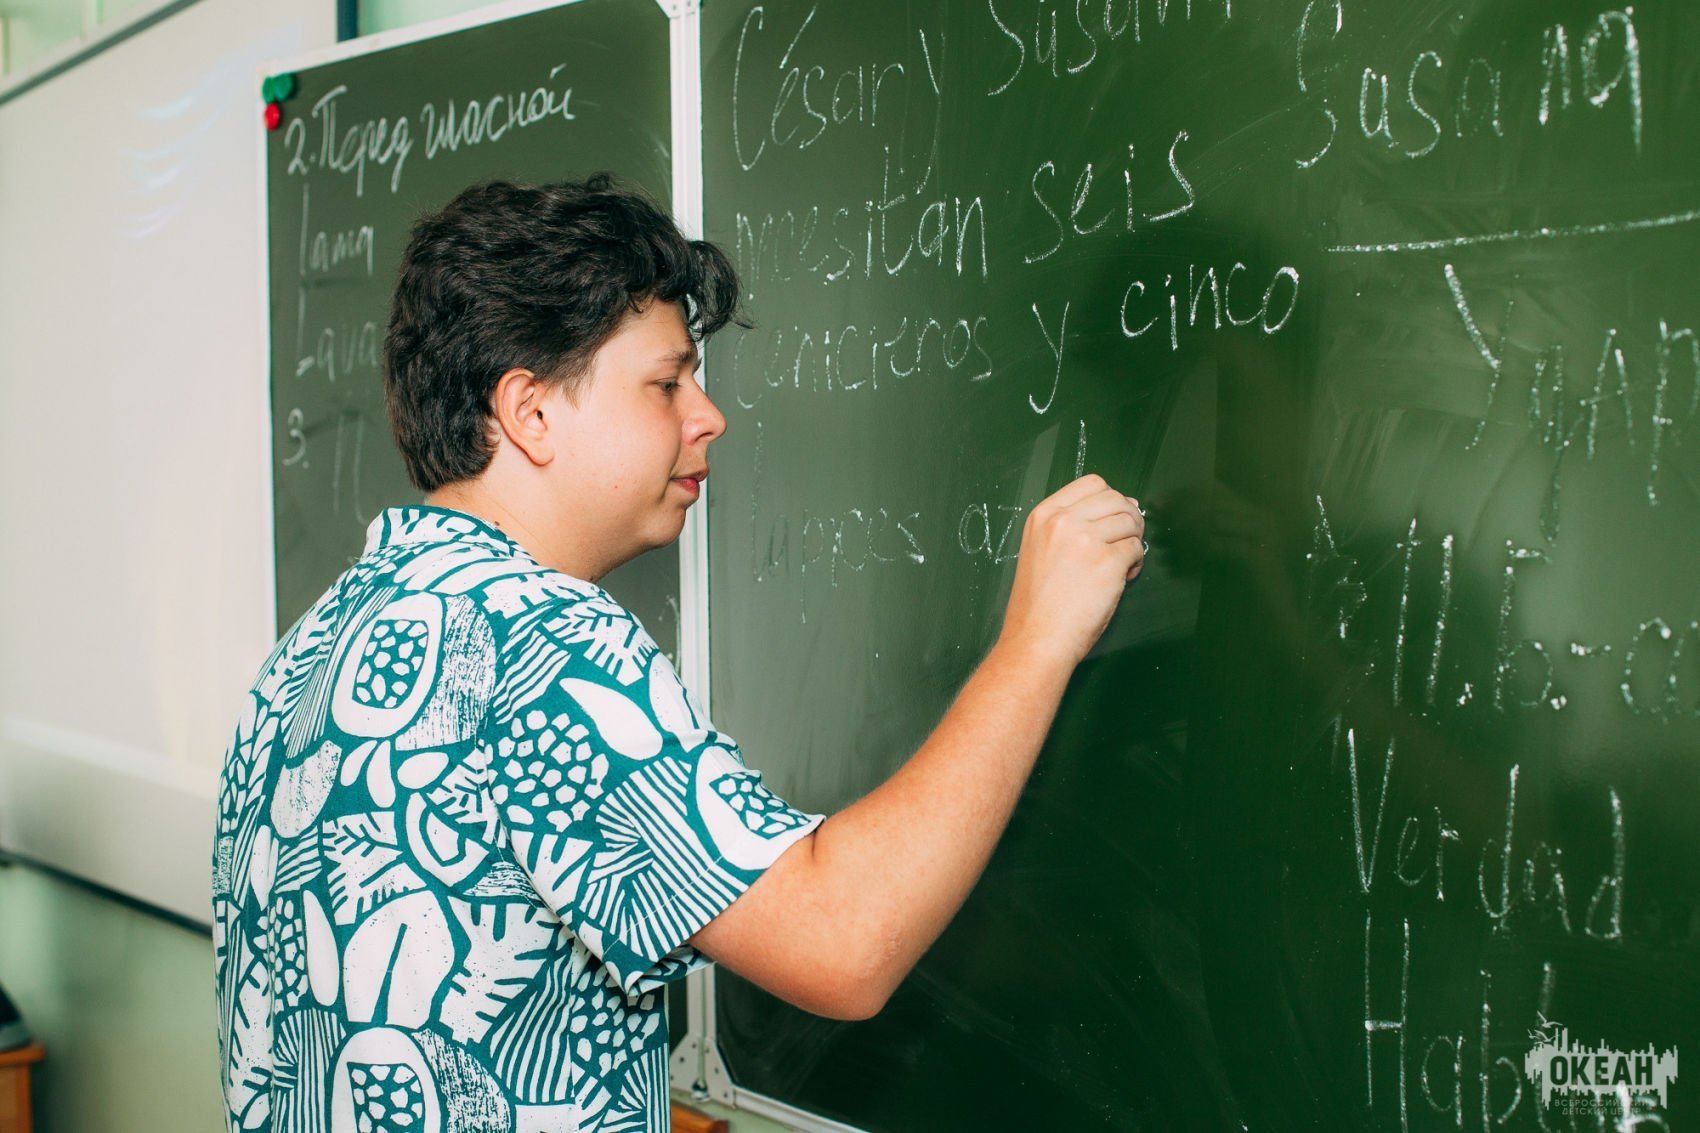 2. Перед гласной
Lama
Lava
3. П
César y Susana
necesitan seis
cenicieros y cinco
lápices az
Susana
Verdad
Hab
ОКЕАН
ВСЕРОССИЙСКИЙ
ДЕТСКИЙ ЦЕНТР